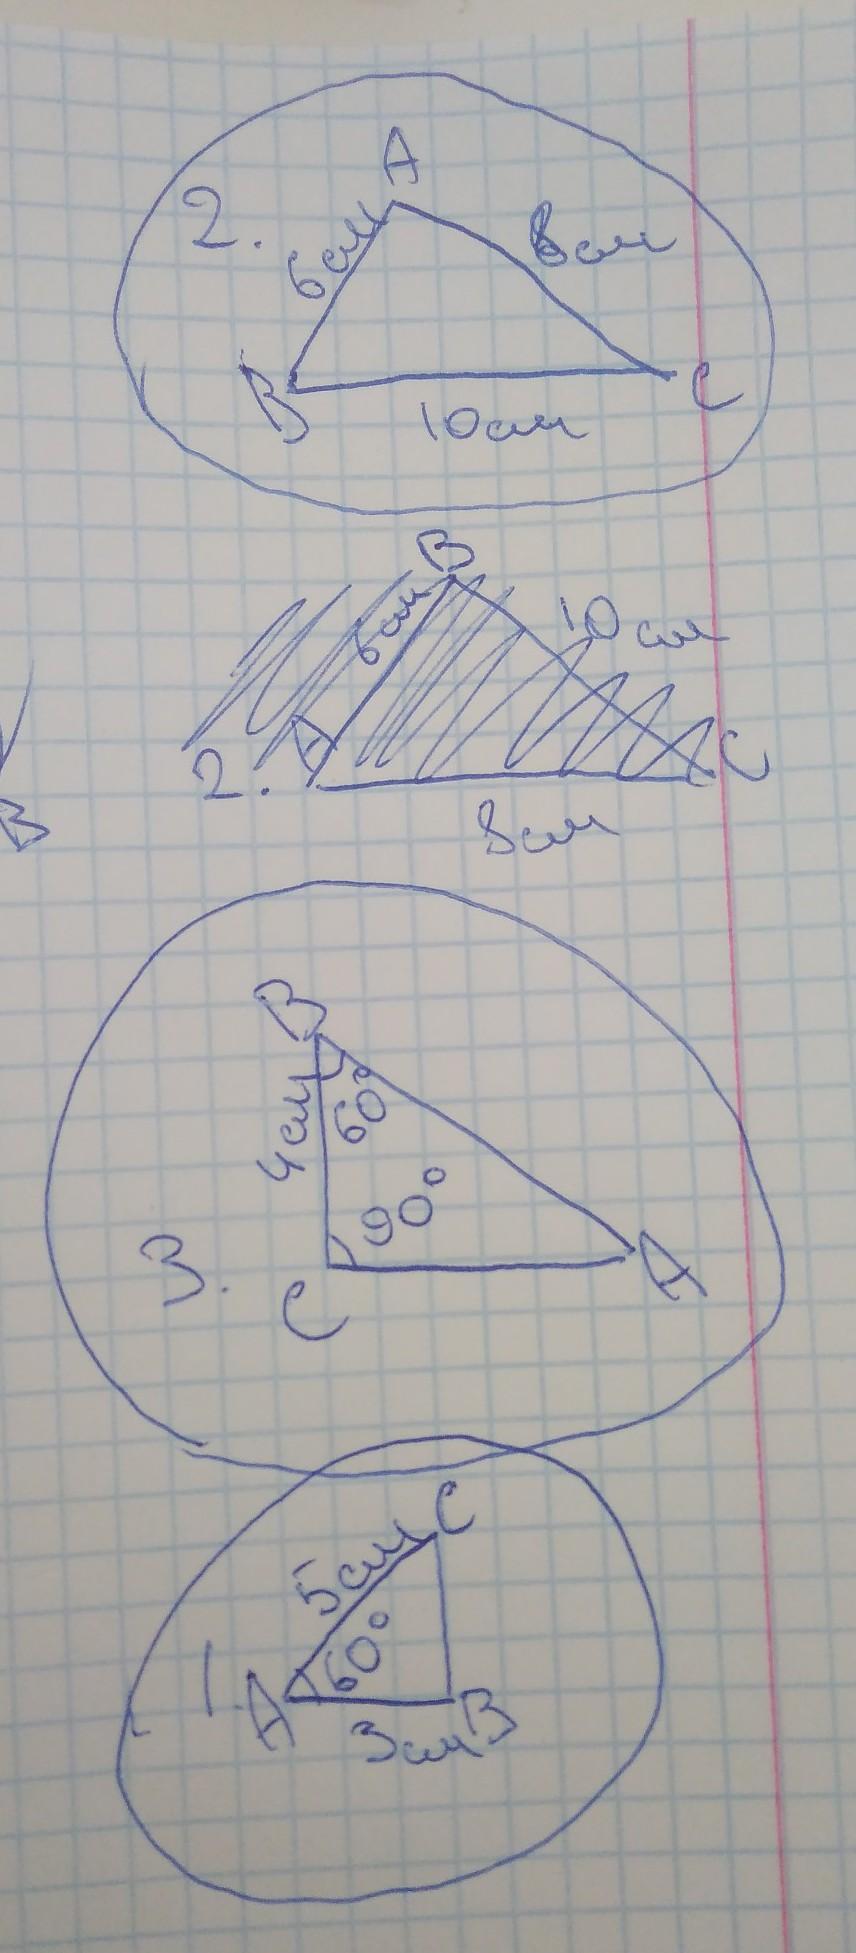 A
2.
6см
8см
B
C
10см
B
6см
10см
2.
A
C
8см
B
B
4см
60°
90°
3.
C
A
C
5см
60°
1.
A
3см
B